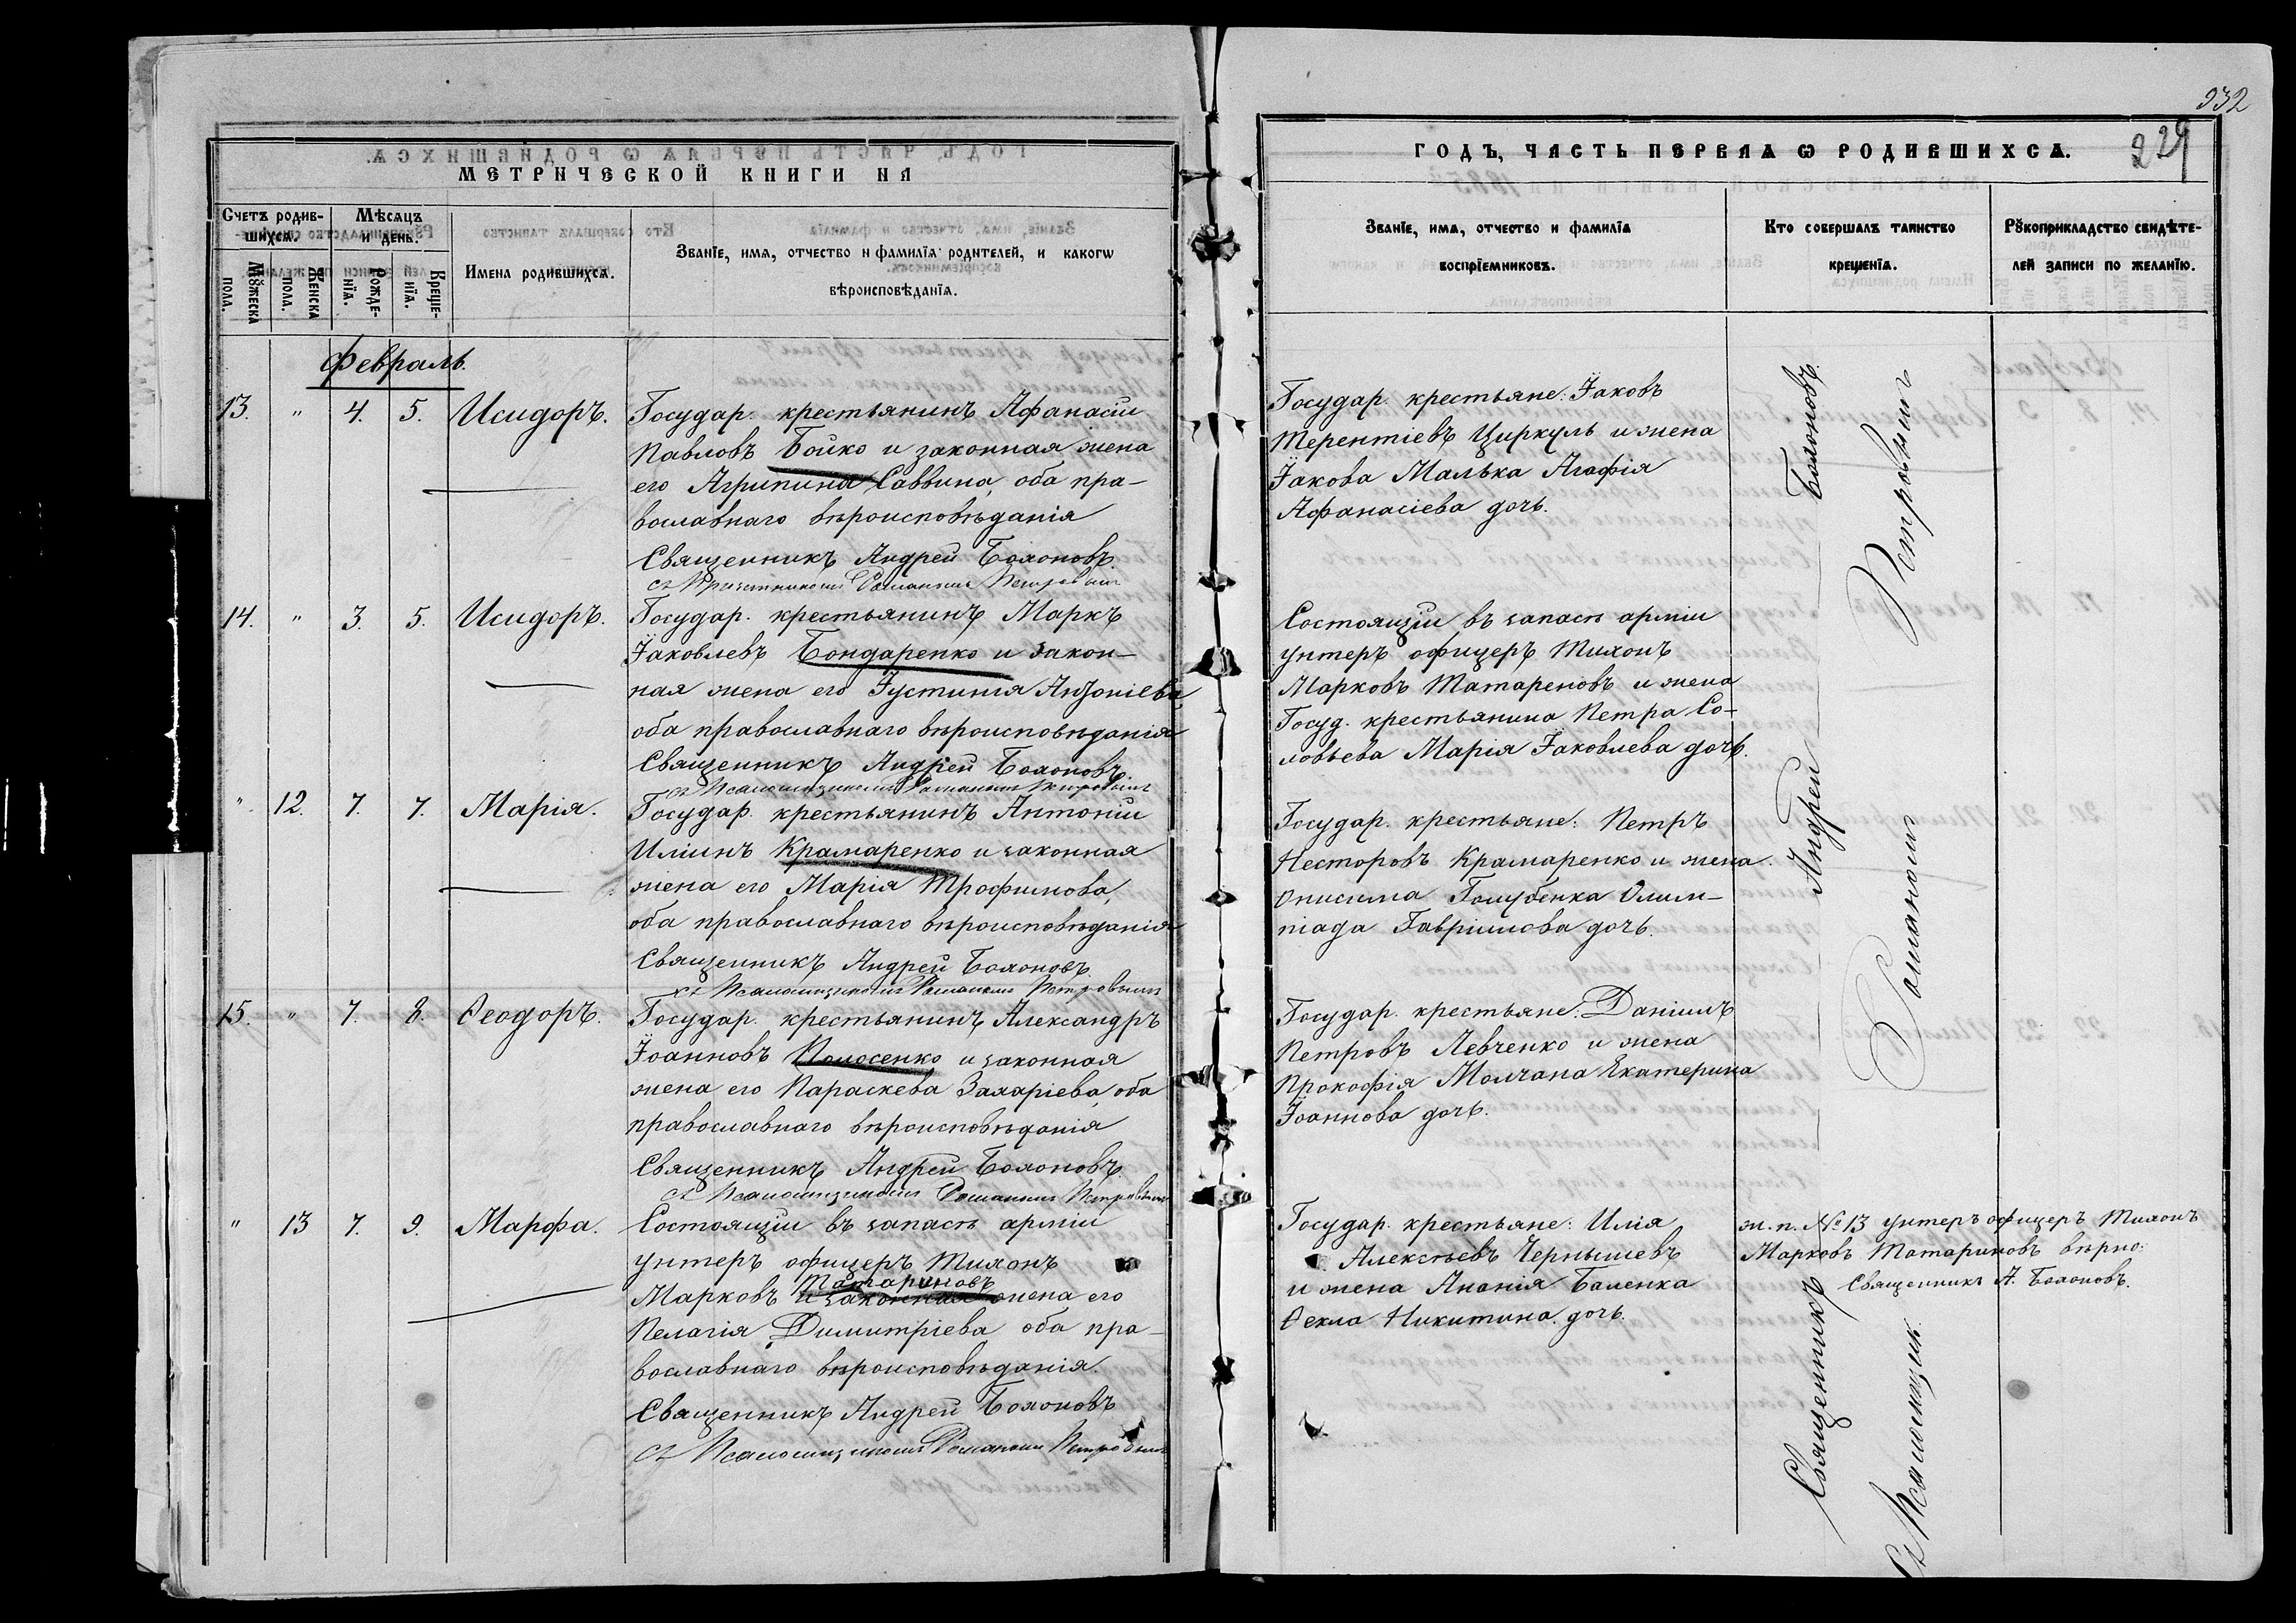 МЕТРИЧЕСКОЙ КНИГИ НА
Счетъ родив-
шихсѧ.
Мѣсѧцъ
и день.
Мꙋжеска
пола.
Женска
пола.
Рожде-
нїѧ.
Креще-
нїѧ.
Имена родившихсѧ.
Званїе, имѧ, отчество и фамилїѧ родителей, и какогѡ
вѣроисповѣданїѧ.
Февраль.
13. " 4. 5. Исидоръ.
Государ. крестьянинъ Афанасій
Павловъ Бойко и законная жена
его Агрипина Саввина, оба пра-
вославнаго вѣроисповѣданія
Священникъ Андрей Болоновъ.
съ Романомъ Петровымъ
14. " 3. 5. Исидоръ.
Государ. крестьянинъ Маркъ
Іаковлевъ Бондаренко и закон-
ная жена его Іустинія Антоніева,
оба православнаго вѣроисповѣданія
Священникъ Андрей Болоновъ.
съ Псаломщикомъ Романомъ Петровымъ
" 12. 7. 7. Марія.
Государ. крестьянинъ Антоній
Иліинъ Крамаренко и законная
жена его Марія Трофимова,
оба православнаго вѣроисповѣданія
Священникъ Андрей Болоновъ.
съ Псаломщикомъ Романомъ Петровымъ
15. " 7. 8. Ѳеодоръ.
Государ. крестьянинъ Александръ
Іоанновъ Полосенко и законная
жена его Параскева Захаріева, оба
православнаго вѣроисповѣданія
Священникъ Андрей Болоновъ.
съ Псаломщикомъ Романомъ Петровымъ
" 13 7. 9. Марфа.
Состоящій въ запасѣ арміи
унтеръ офицеръ Тихонъ
Татариновъ
Марковъ и законная жена его
Пелагія Димитріева оба пра-
вославнаго вѣроисповѣданія.
Священникъ Андрей Болоновъ
съ Псаломщикомъ Романомъ Петровымъ
932
229
ГОДЪ, ЧАСТЬ ПЕРВАѦ Ѡ РОДИВШИХСѦ.
Званїе, имѧ, отчество и фамилїѧ
воспрїемниковъ.
Кто совершалъ таинство
крещенїѧ.
Рꙋкоприкладство свидѣте-
лей записи по желанїю.
Государ. крестьяне: Іаковъ
Терентіевъ Циркуль и жена
Іакова Малька Агафія
Афанасіева дочь.
Состоящій въ запасѣ арміи
унтеръ офицеръ Тихонъ
Марковъ Татареновъ и жена
Госуд. крестьянина Петра Со-
ловьева Марія Іаковлева дочь.
Государ. крестьяне: Петръ
Несторовъ Крамаренко и жена
Онисима Голубенка Олим-
піада Гавріилова дочь.
Государ. крестьяне: Даніилъ
Петровъ Левченко и жена
Прокофія Молчана Екатерина
Іоаннова дочь.
Государ. крестьяне: Илія
Алексѣевъ Чернышевъ
и жена Ананія Баленка
Ѳекла Никитина дочь.
Священникъ Андрей Болоновъ.
съ Псаломщик. Романомъ Петровымъ
ж. п. № 13 унтеръ офицеръ Тихонъ
Марковъ Татариновъ вѣрно:
Священникъ А. Болоновъ.